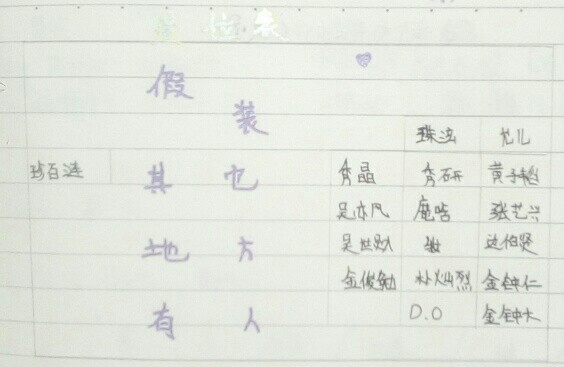 座位表
假装
珠泫 允儿
其它 秀晶 秀研 黄子韬
吴亦凡 鹿晗 张艺兴
地方 吴世勋 边伯贤
金俊勉 朴灿烈 金钟仁
有人 D.O 金钟大